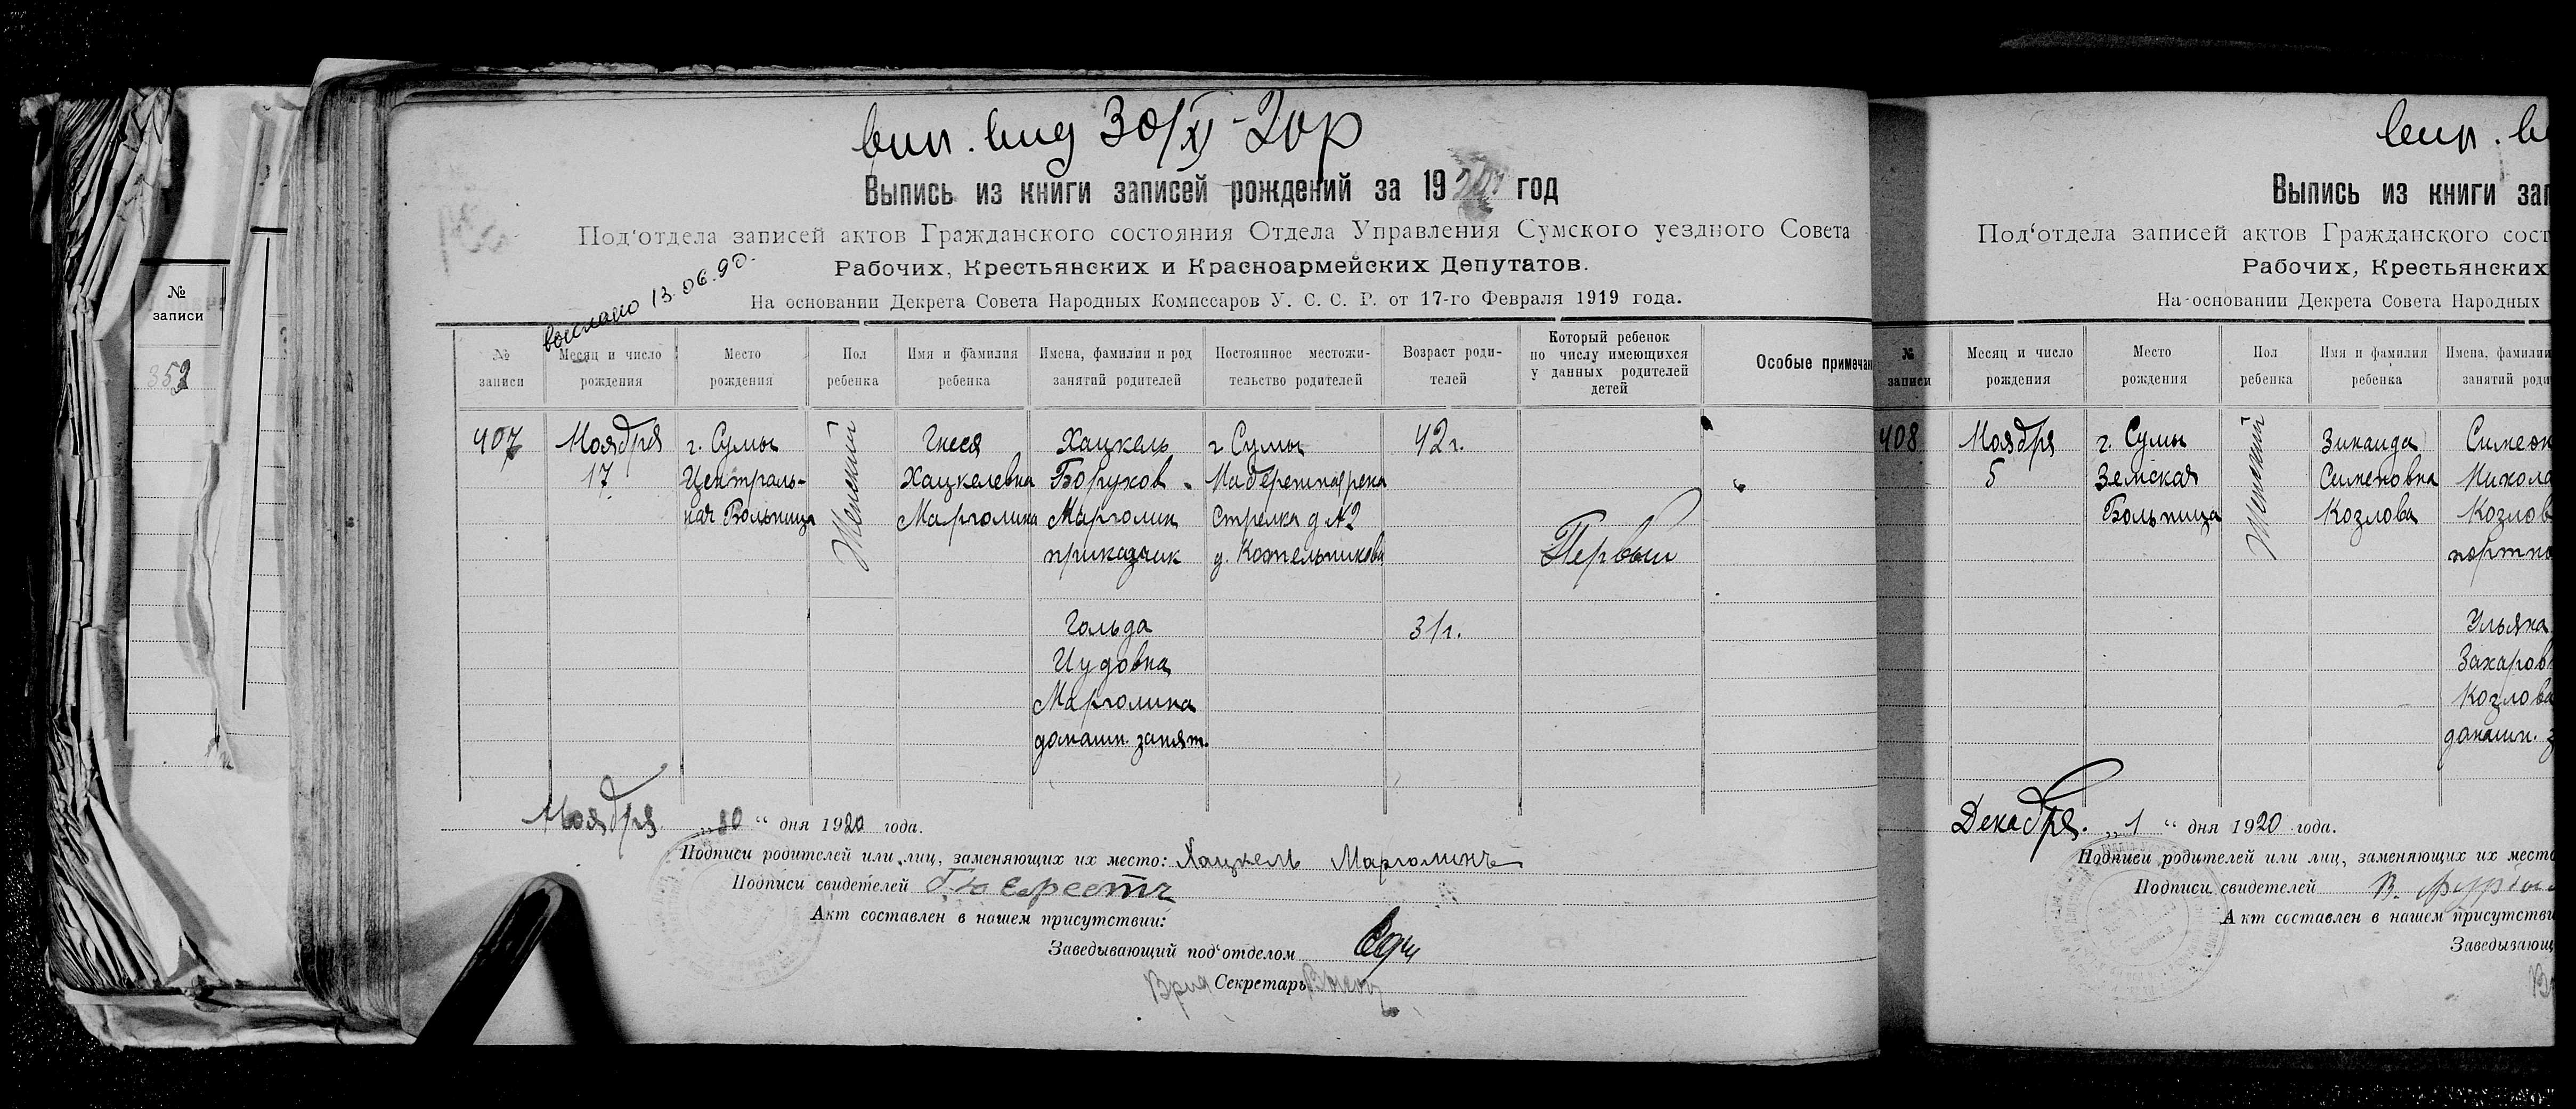 №
записи
353
вип. вид 30/XI-20р
Выпись из книги записей рождений за 1920 год
Под'отдела записей актов Гражданского состояния Отдела Управления Сумского уездного Совета
Рабочих, Крестьянских и Красноармейских Депутатов.
На основании Декрета Совета Народных Комиссаров У. С. С. Р. от 17-го Февраля 1919 года.
выслано 13.06.90.
№ записи
Месяц и число рождения
Место рождения
Пол ребенка
Имя и фамилия ребенка
Имена, фамилии и род занятий родителей
Постоянное местожи-тельство родителей
Возраст роди-телей
Который ребенок по числу имеющихся у данных родителей детей
Особые примечан
407
Ноября
17
г. Сумы
Централь-
ная Больница
Женский
Гнеся
Хацкелевна
Марголина
Хацкель
Борухов.
Марголин
приказчик
г Сумы
Набережная река
Стрелка д №2
д. Котельникова
42г.
Первый
Гольда
Иудовна
Марголина
домашн. занят.
31г.
Ноября „30“ дня 1920 года.
Подписи родителей или лиц, заменяющих их место: Хацкель Марголинъ
Подписи свидетелей
Акт составлен в нашем присутствии:
Заведывающий под'отделом
Врид Секретарь
вип. в
Выпись из книги зап
Под'отдела записей актов Гражданского сост
Рабочих, Крестьянских
На основании Декрета Совета Народных
№ записи
Месяц и число рождения
Место рождения
Пол ребенка
Имя и фамилия ребенка
Имена, фамилии
занятий роди
408
Ноября
5
г. Сумы
Земская
Больница
Женский
Зинаида
Сименовна
Козлова
Симеон
Никола
Козлов
портно
Ульяна
Захаров
Козлова
домашн. з
Декабря. „1“ дня 1920 года.
Подписи родителей или лиц, заменяющих их место
Подписи свидетелей
Акт составлен в нашем присутстви
Заведывающ